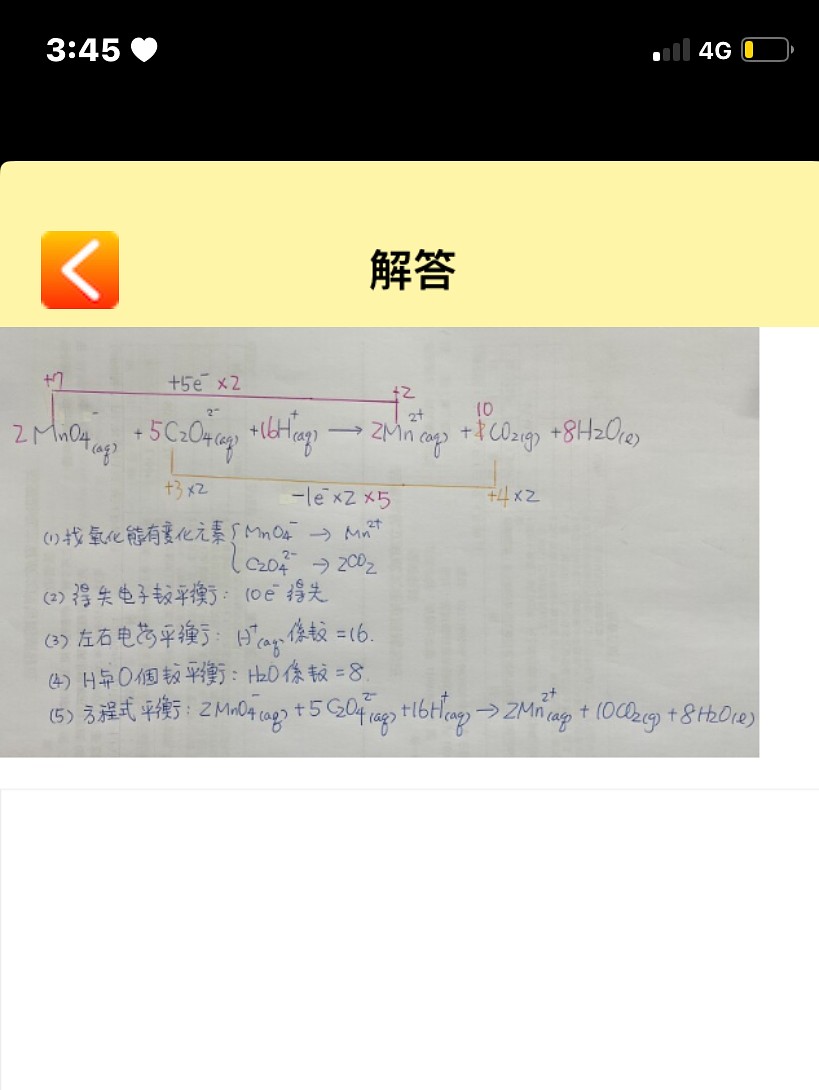 3:45
4G
解答
+7 +5e⁻ ×2 +2
2MnO₄⁻(aq) + 5C₂O₄²⁻(aq) + 16H⁺(aq) → 2Mn²⁺(aq) + 10CO₂(g) + 8H₂O(ℓ)
+3×2 −1e⁻×2 ×5 +4×2
(1) 找氧化態有變化元素 { MnO₄⁻ → Mn²⁺
C₂O₄²⁻ → 2CO₂
(2) 得失电子數平衡: 10e⁻得失
(3) 左右电荷平衡: H⁺(aq)係數=16.
(4) H与O個數平衡: H₂O係數=8.
(5) 方程式平衡: 2MnO₄⁻(aq) + 5C₂O₄²⁻(aq) + 16H⁺(aq) → 2Mn²⁺(aq) + 10CO₂(g) + 8H₂O(ℓ)